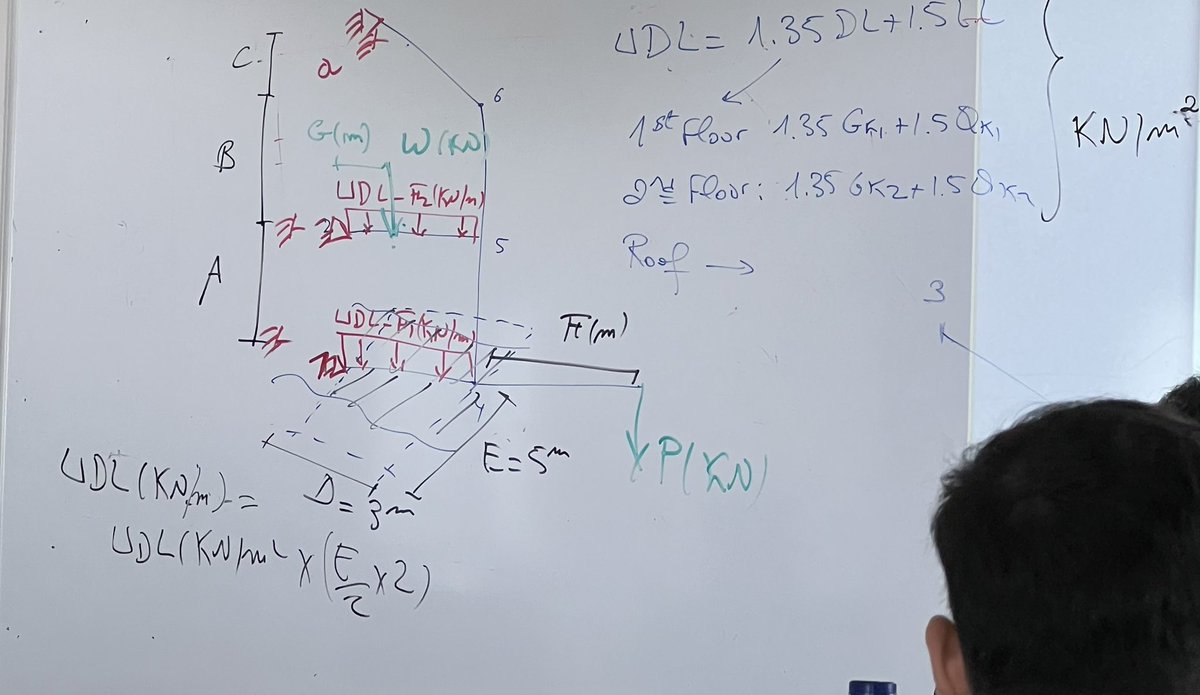 UDL = 1.35 DL + 1.5 LL
1st Floor 1.35 GK1 + 1.5 QK1
2nd Floor: 1.35 GK2 + 1.5 QK2
KN/m2
Roof →
3
C
a
6
B
G(m)
W(KN)
UDL-F2(KN/m)
5
A
UDL-F1(KN/m)
F(m)
4
E=5m
P(KN)
D=3m
UDL(KN/m) =
UDL(KN/m2 x (E/2 x 2)